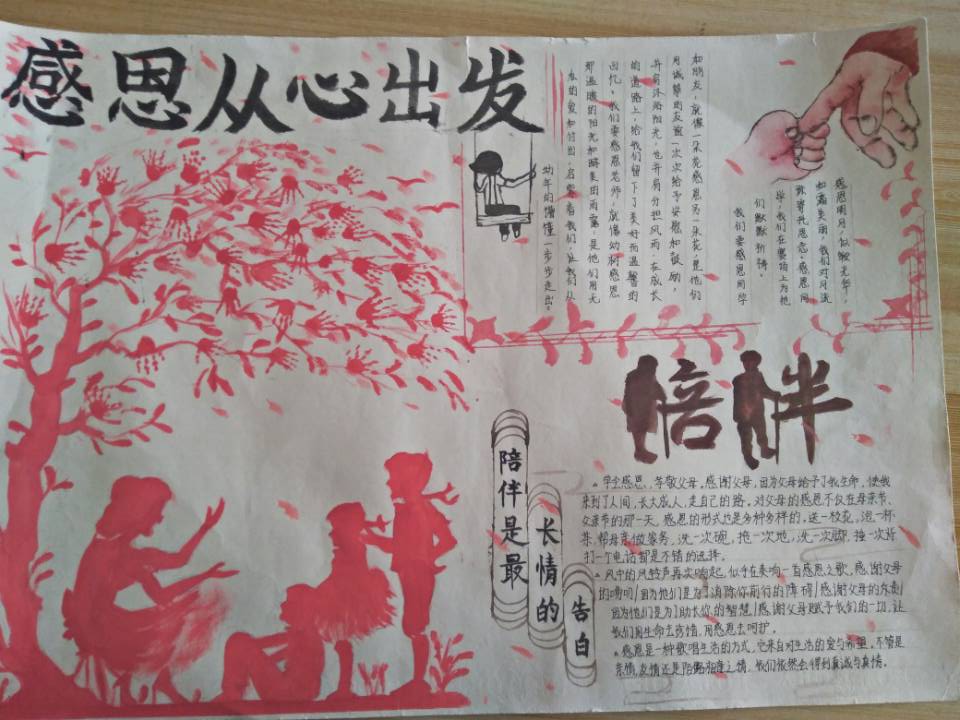 感恩从心出发
和朋友,就像一朵花感恩另一朵花,是他们
用诚挚的友谊一次次给予安慰和鼓励,
并肩沐浴阳光,也并肩分担风雨,在成长
的道路上,给我们留下了美好而温馨的
回忆。我们要感恩老师,就像幼树感恩
那温暖的阳光和雨露,是他们用无
私的爱和付出,启蒙着我们,让我们从
幼年的懵懂一步步走出。
感恩明月,似银光华,
如霜美丽,我们对月流
我们要感恩同学
们默默祈祷。
陪伴
陪伴是最
长情的
告白
。学会感恩,孝敬父母,感谢父母,因为父母给予了我生命,使我
来到了人间,长大成人,走自己的路。对父母的感恩不仅在母亲节、
父亲节的那一天,感恩的形式也是多种多样的,送一枝花,泡一杯
茶,帮母亲做家务,洗一次碗,拖一次地,洗一次脚,捶一次背
打一个电话都是不错的选择。
。风中的风铃声再次响起,似乎在奏响一首感恩之歌,感谢父母
的唠叨/因为他们是为了消除你前行的障碍/感谢父母的斥责/
因为他们是为了助长你的智慧/感谢父母赋予我们的一切,让
我们用生命去珍惜,用感恩去呵护。
。感恩是一种歌唱生活的方式,它来自对生活的爱与希望,不管是
亲情,友情还是陌路相逢之情,我们依然会得到真诚与真情。